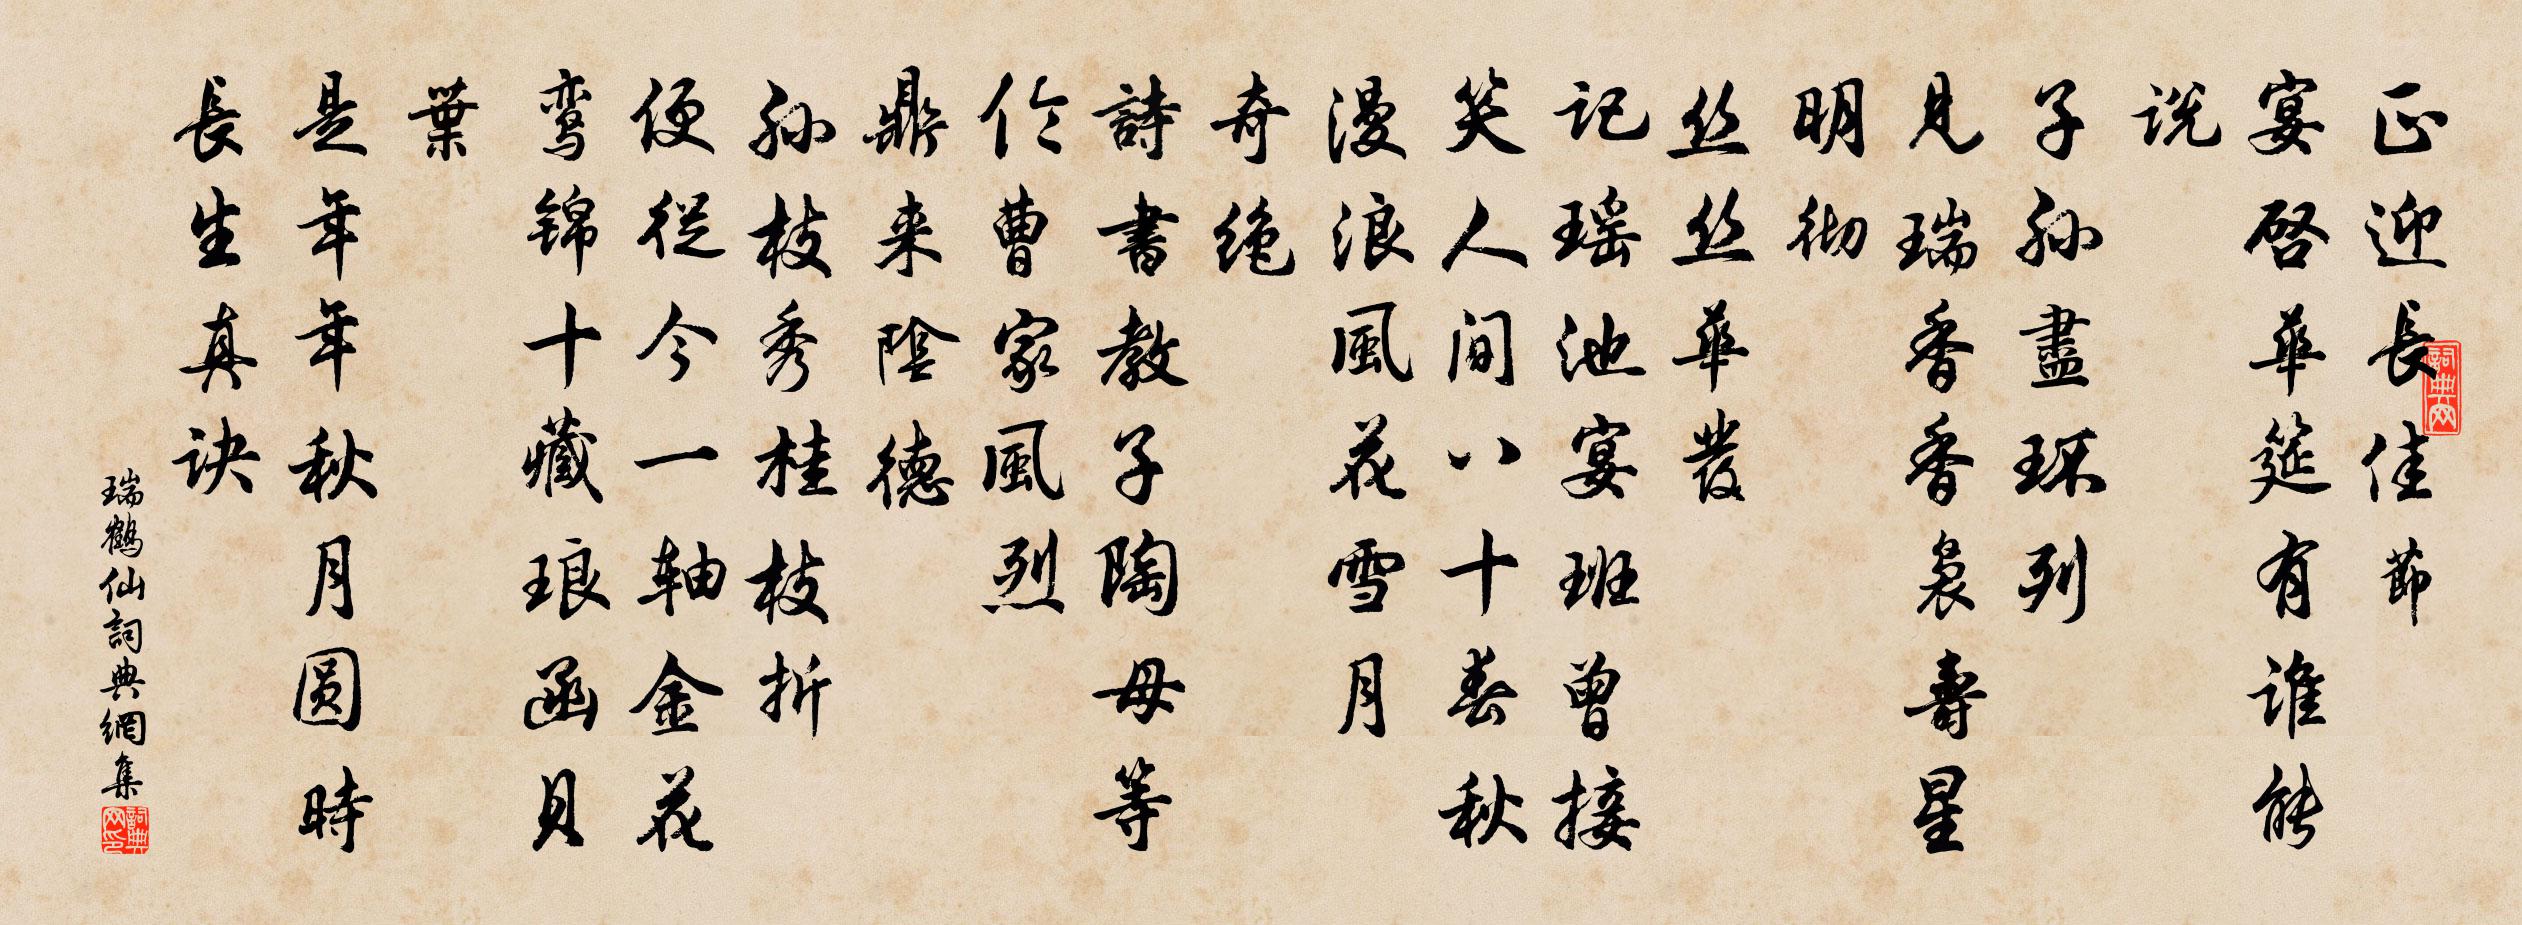 正迎長佳節
宴啓華筵有谁能
说
子孙盡环列
見瑞香香袅壽星
明彻
丝丝華發
记瑶池宴班曾接
笑人间八十春秋
漫浪風花雪月
奇绝
詩書教子陶母等
伦曹家風烈
鼎来陰德
孙枝秀桂枝折
便從今一轴金花
鸾锦十藏琅函貝
葉
是年年秋月圆時
長生真诀
瑞鶴仙詞典網集
詞典网
詞典网印